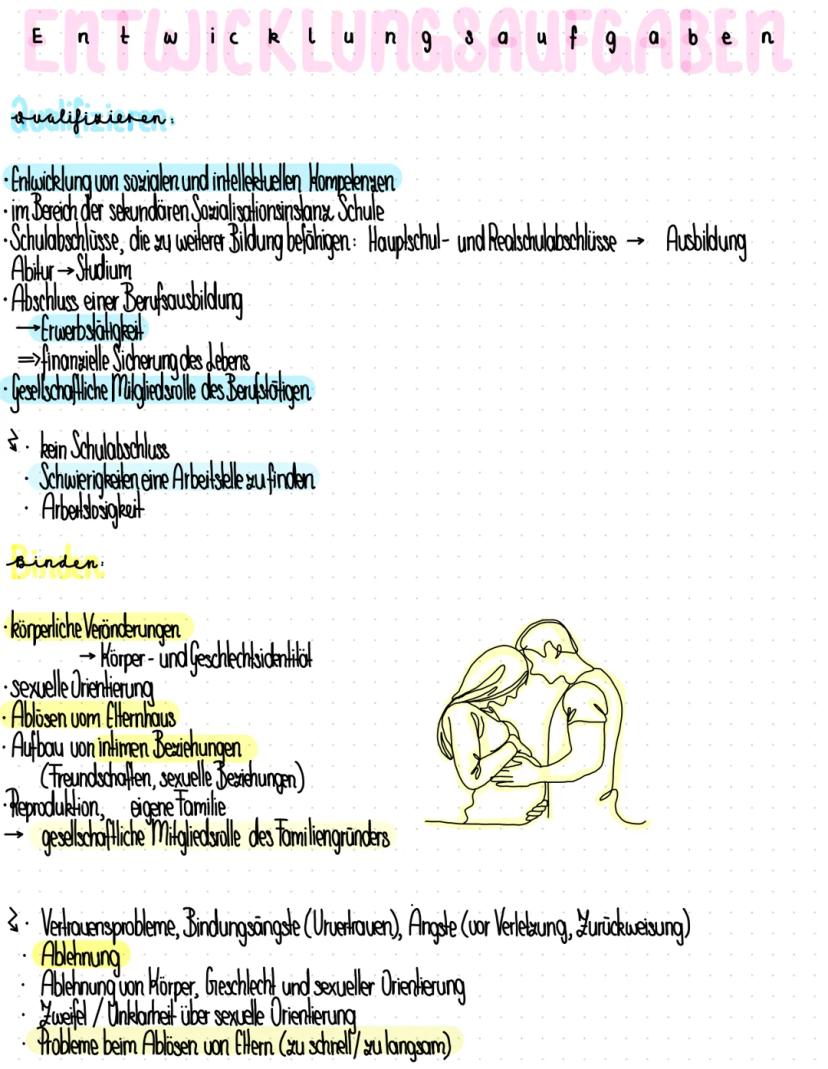 Entwicklungsaufgaben
Qualifizieren:
· Entwicklung von sozialen und intellektuellen Kompetenzen
· im Bereich der sekundären Sozialisationsinstanz Schule
· Schulabschlüsse, die zu weiterer Bildung befähigen: Hauptschul- und Realschulabschlüsse → Ausbildung
Abitur → Studium
· Abschluss einer Berufsausbildung
→ Erwerbstätigkeit
⇒ finanzielle Sicherung des Lebens
· Gesellschaftliche Mitgliedsrolle des Berufstätigen
· kein Schulabschluss
· Schwierigkeiten eine Arbeitstelle zu finden
· Arbeitslosigkeit
Binden:
· körperliche Veränderungen
→ Körper- und Geschlechtsidentität
· sexuelle Orientierung
· Ablösen vom Elternhaus
· Aufbau von intimen Beziehungen
(Freundschaften, sexuelle Beziehungen)
· Reproduktion, eigene Familie
→ gesellschaftliche Mitgliedsrolle des Familiengründers
· Vertrauensprobleme, Bindungsängste (Urvertrauen), Ängste (vor Verletzung, Zurückweisung)
· Ablehnung
· Ablehnung von Körper, Geschlecht und sexueller Orientierung
· Zweifel / Unklarheit über sexuelle Orientierung
· Probleme beim Ablösen von Eltern (zu schnell / zu langsam)